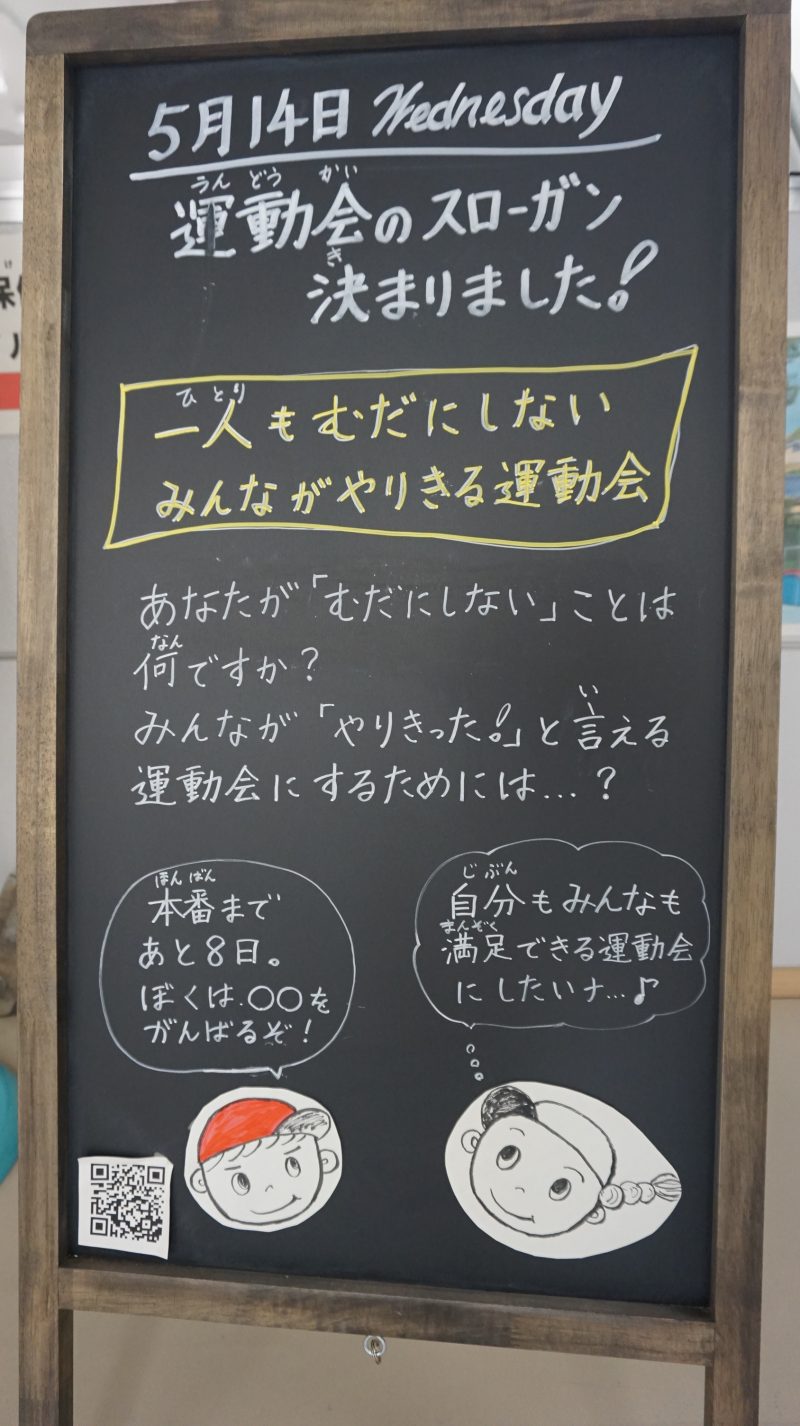 5月14日 Wednesday
うんどうかい
運動会のスローガン
き
決まりました!
ひとり
一人もむだにしない
みんながやりきる運動会
あなたが「むだにしない」ことは
なん
何ですか?
みんなが「やりきった!」と言える
い
運動会にするためには…?
ほんばん
本番まで
あと8日。
ぼくは.〇〇を
がんばるぞ!
じぶん
自分もみんなも
まんぞく
満足できる運動会
にしたいナ…♪